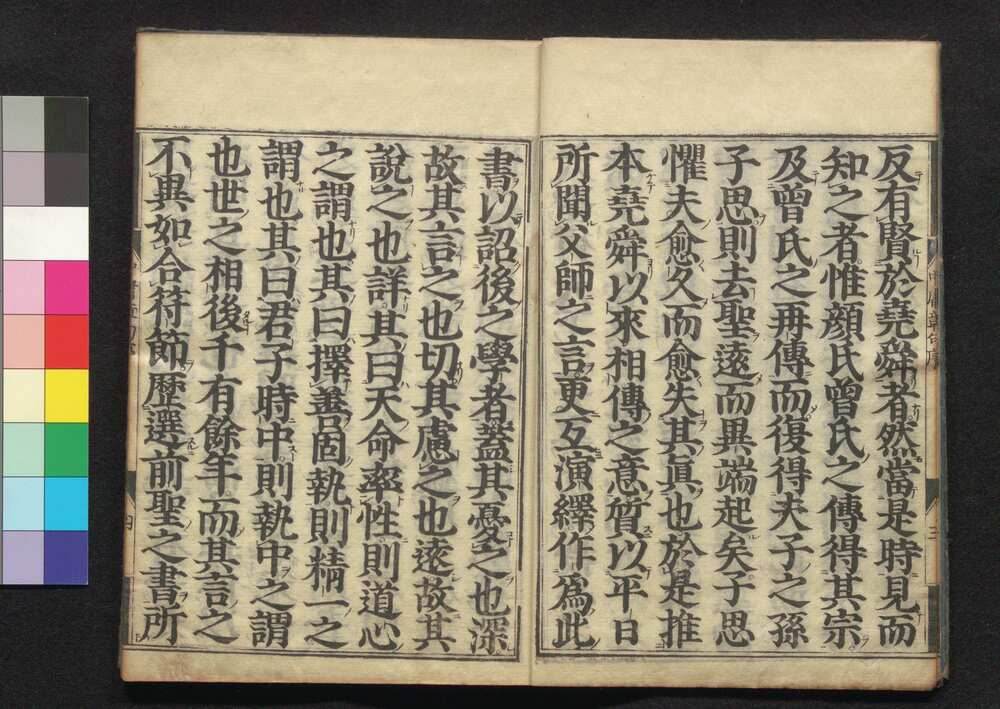 反有賢於堯舜者然當是時見而
知之者惟顔氏曾氏之傳得其宗
及曾氏之再傳而復得夫子之孫
子思則去聖遠而異端起矣子思
懼夫愈久而愈失其眞也於是推
本堯舜以來相傳之意質以平日
所聞父師之言更互演繹作爲此
書以詔後之學者蓋其憂之也深
故其言之也切其慮之也遠故其
說之也詳其曰天命率性則道心
之謂也其曰擇善固執則精一之
謂也其曰君子時中則執中之謂
也世之相後千有餘年而其言之
不異如合符節歷選前聖之書所